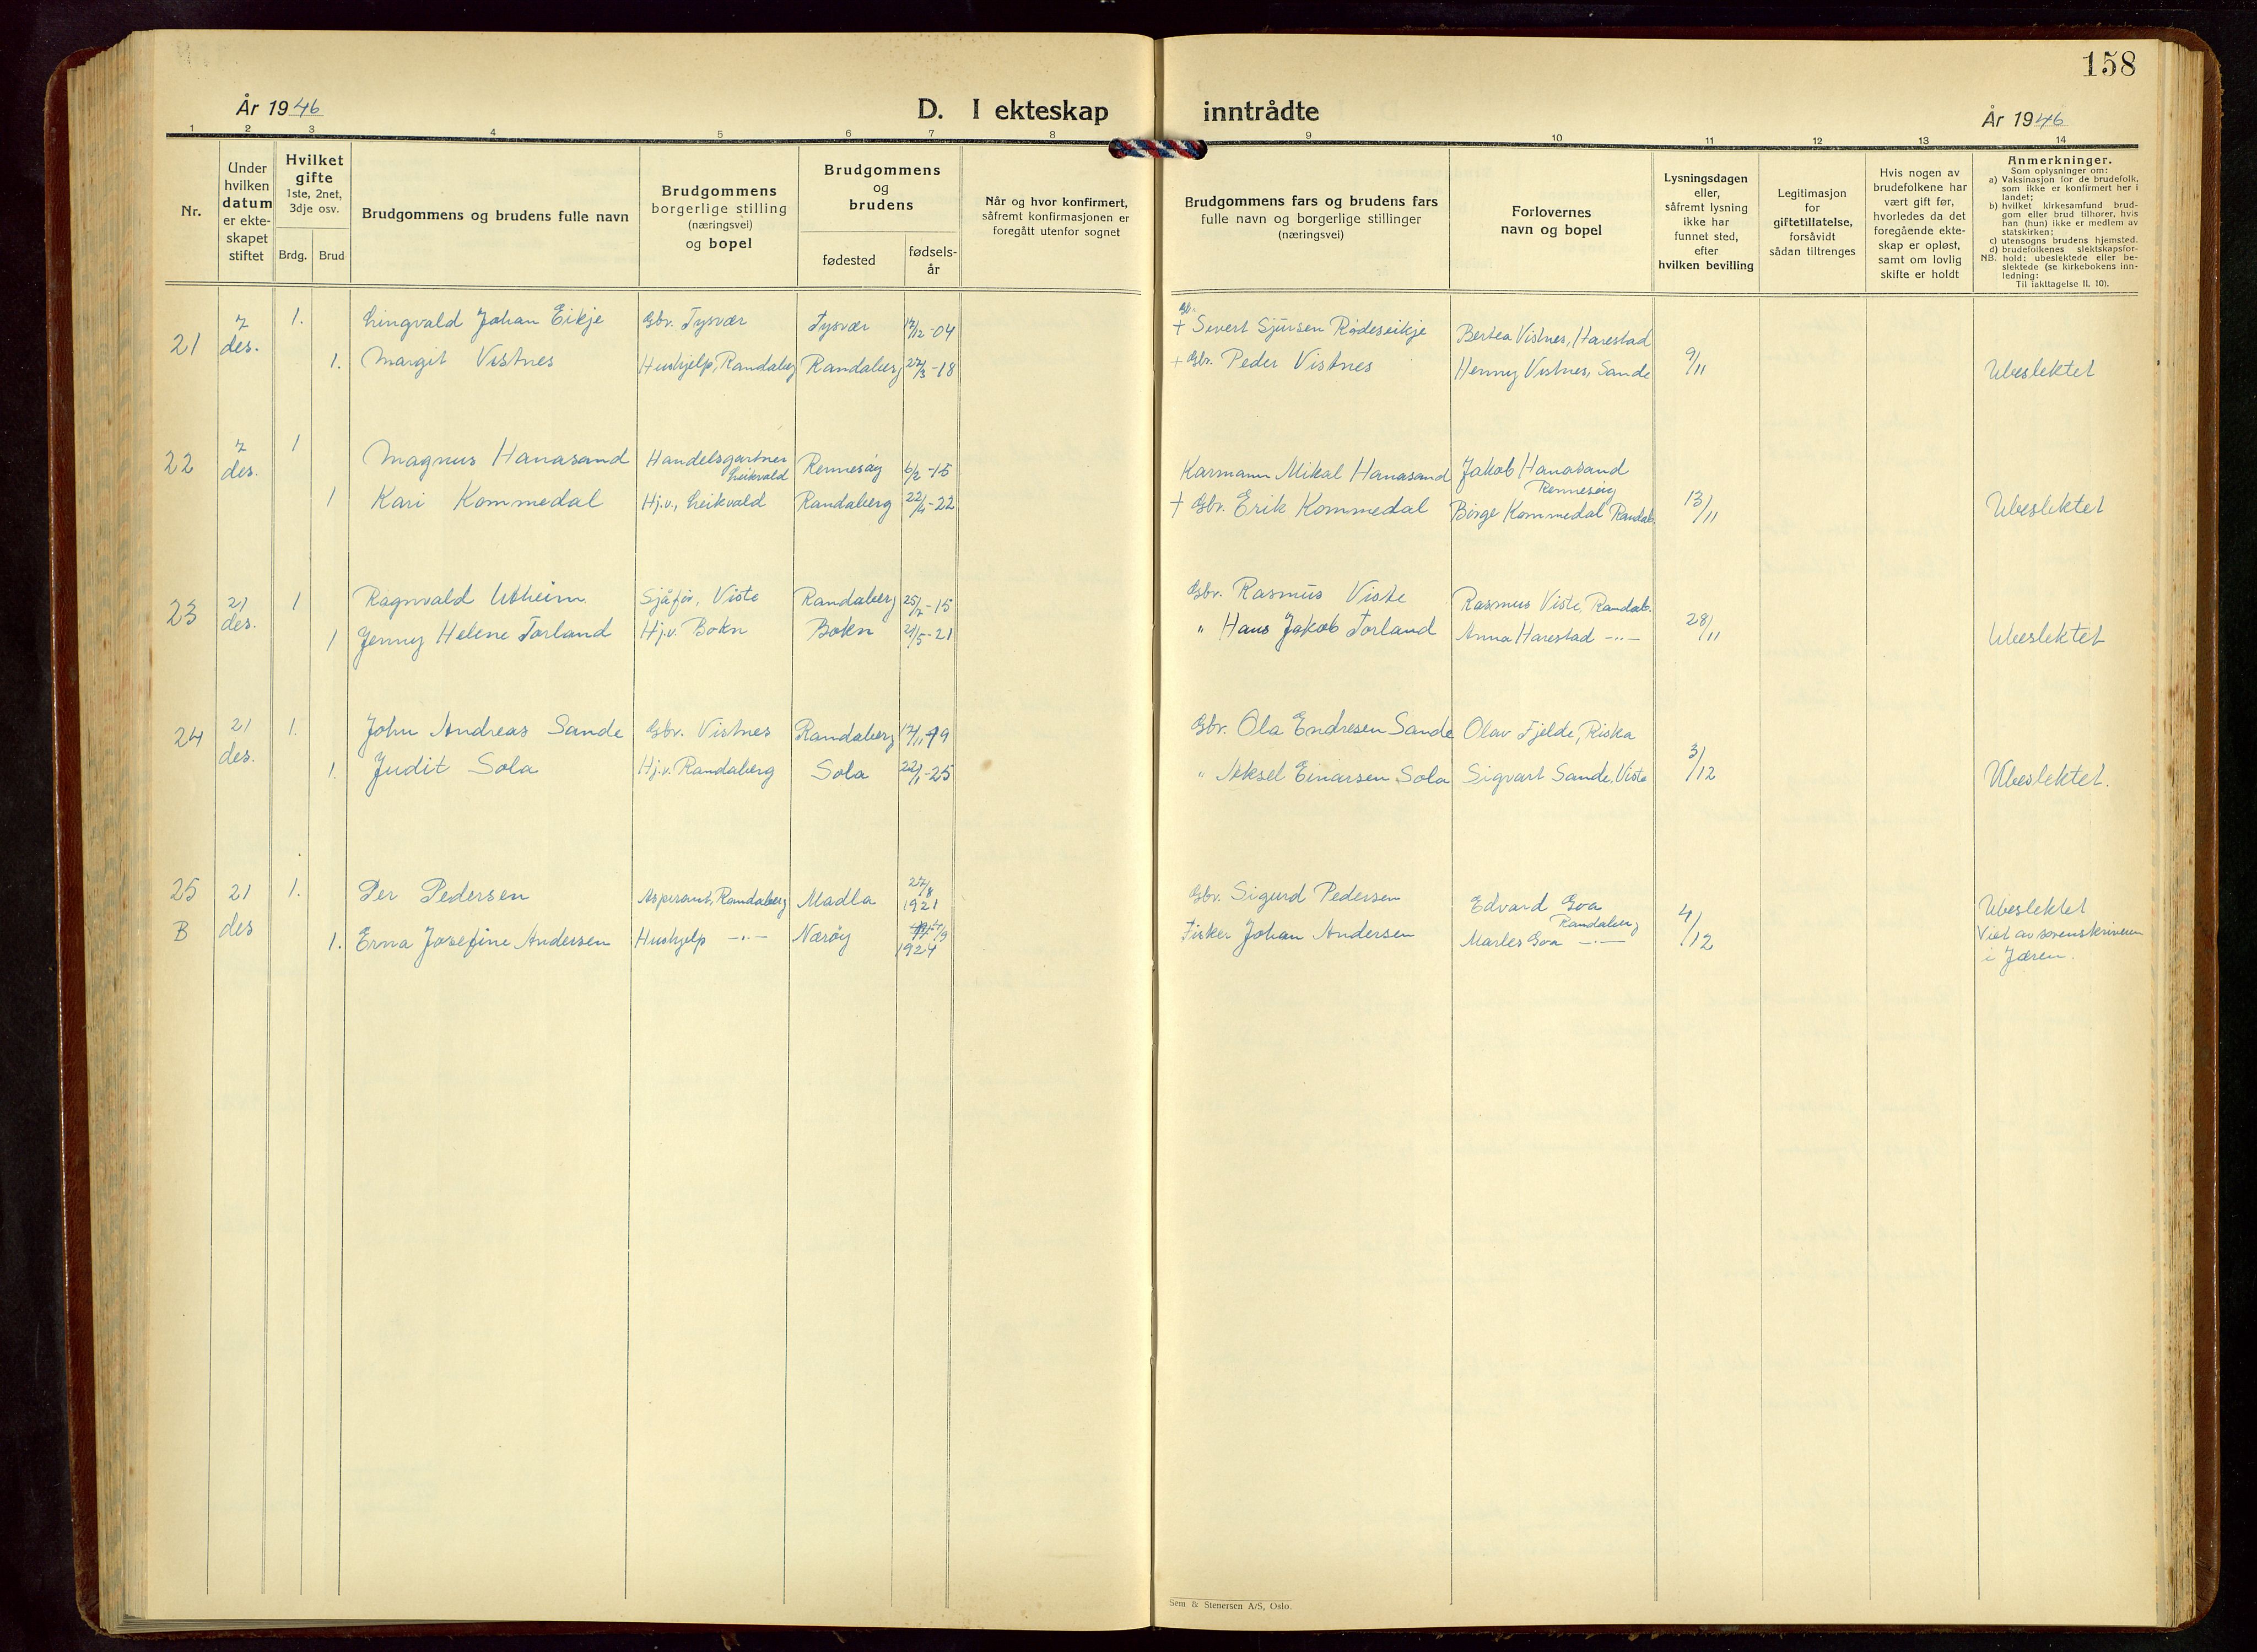 158
År 1946
D. I ekteskap inntrådte
År 1946
1 2 3 4 5 6 7 8 9 10 11 12 13 14
Nr.
Under
hvilken
datum
er ekte-
skapet
stiftet
Hvilket
gifte
1ste, 2net,
3dje osv.
Brdg. Brud
Brudgommens og brudens fulle navn
Brudgommens
borgerlige stilling
(næringsvei)
og bopel
Brudgommens
og
brudens
fødested
fødsels-
år
Når og hvor konfirmert,
såfremt konfirmasjonen er
foregått utenfor sognet
Brudgommens fars og brudens fars
fulle navn og borgerlige stillinger
(næringsvei)
Forlovernes
navn og bopel
Lysningsdagen
eller,
såfremt lysning
ikke har
funnet sted,
efter
hvilken bevilling
Legitimasjon
for
giftetillatelse,
forsåvidt
sådan tiltrenges
Hvis nogen av
brudefolkene har
vært gift før,
hvorledes da det
foregående ekte-
skap er opløst,
samt om lovlig
skifte er holdt
Anmerkninger.
Som oplysninger om:
a) Vaksinasjon for de brudefolk,
som ikke er konfirmert her i
landet;
b) hvilket kirkesamfund brud-
gom eller brud tilhører, hvis
han (hun) ikke er medlem av
statskirken;
c) utensogns brudens hjemsted.
d) brudefolkenes slektskapsfor-
NB. hold: ubeslektede eller be-
slektede (se kirkebokens inn-
ledning:
Til iakttagelse II. 10).
21 7 des. 1. Lingvald Johan Eikje Gbr. Tysvær Tysvær 17/12-04 Gbr. + Sivert Sjursen Rødeseikje Bertea Vistnes, Harestad
1. Margit Vistnes Hushjelp, Randaberg Randaberg 27/3-18 + Gbr. Peder Vistnes Henny Vistnes, Sande 9/11 Ubeslektet
22 7 des. 1 Magnus Hanasand Handelsgartner Leikvold Rennesøy 6/2-15 Karmann Mikal Hanasand Jakob Hanasand Rennesøy
1 Kari Kommedal Hj.v., Leikvold Randaberg 22/4-22 + Gbr. Erik Kommedal Børge Kommedal Randab. 13/11 Ubeslektet
23 21 des. 1 Ragnvald Utheim Sjåfør, Viste Randaberg 25/7-15 Gbr. Rasmus Viste Rasmus Viste, Randab.
1 Jenny Helene Torland Hj.v. Bokn Bokn 21/5-21 " Hans Jakob Torland Anna Harestad -"- 28/11 Ubeslektet
24 21 des. 1. John Andreas Sande Gbr. Vistnes Randaberg 17/11-19 Gbr. Ola Endresen Sande Olav Fjelde, Riska
1. Judit Sola Hj.v. Randaberg Sola 22/1-25 " Aksel Einarsen Sola Sigvart Sande, Viste 3/12 Ubeslektet.
25 B 21 des 1. Per Pedersen Aspirant, Randaberg Madla 27/8 1921 Gbr. Sigurd Pedersen Edvard Goa Randaberg Ubeslektet
1. Erna Josefine Andersen Hushjelp -"- Nærøy 1924 Fisker Johan Andersen Marles Goa -"- 4/12 Viet av sorenskriveren
i Jæren.
Sem & Stenersen A/S, Oslo.